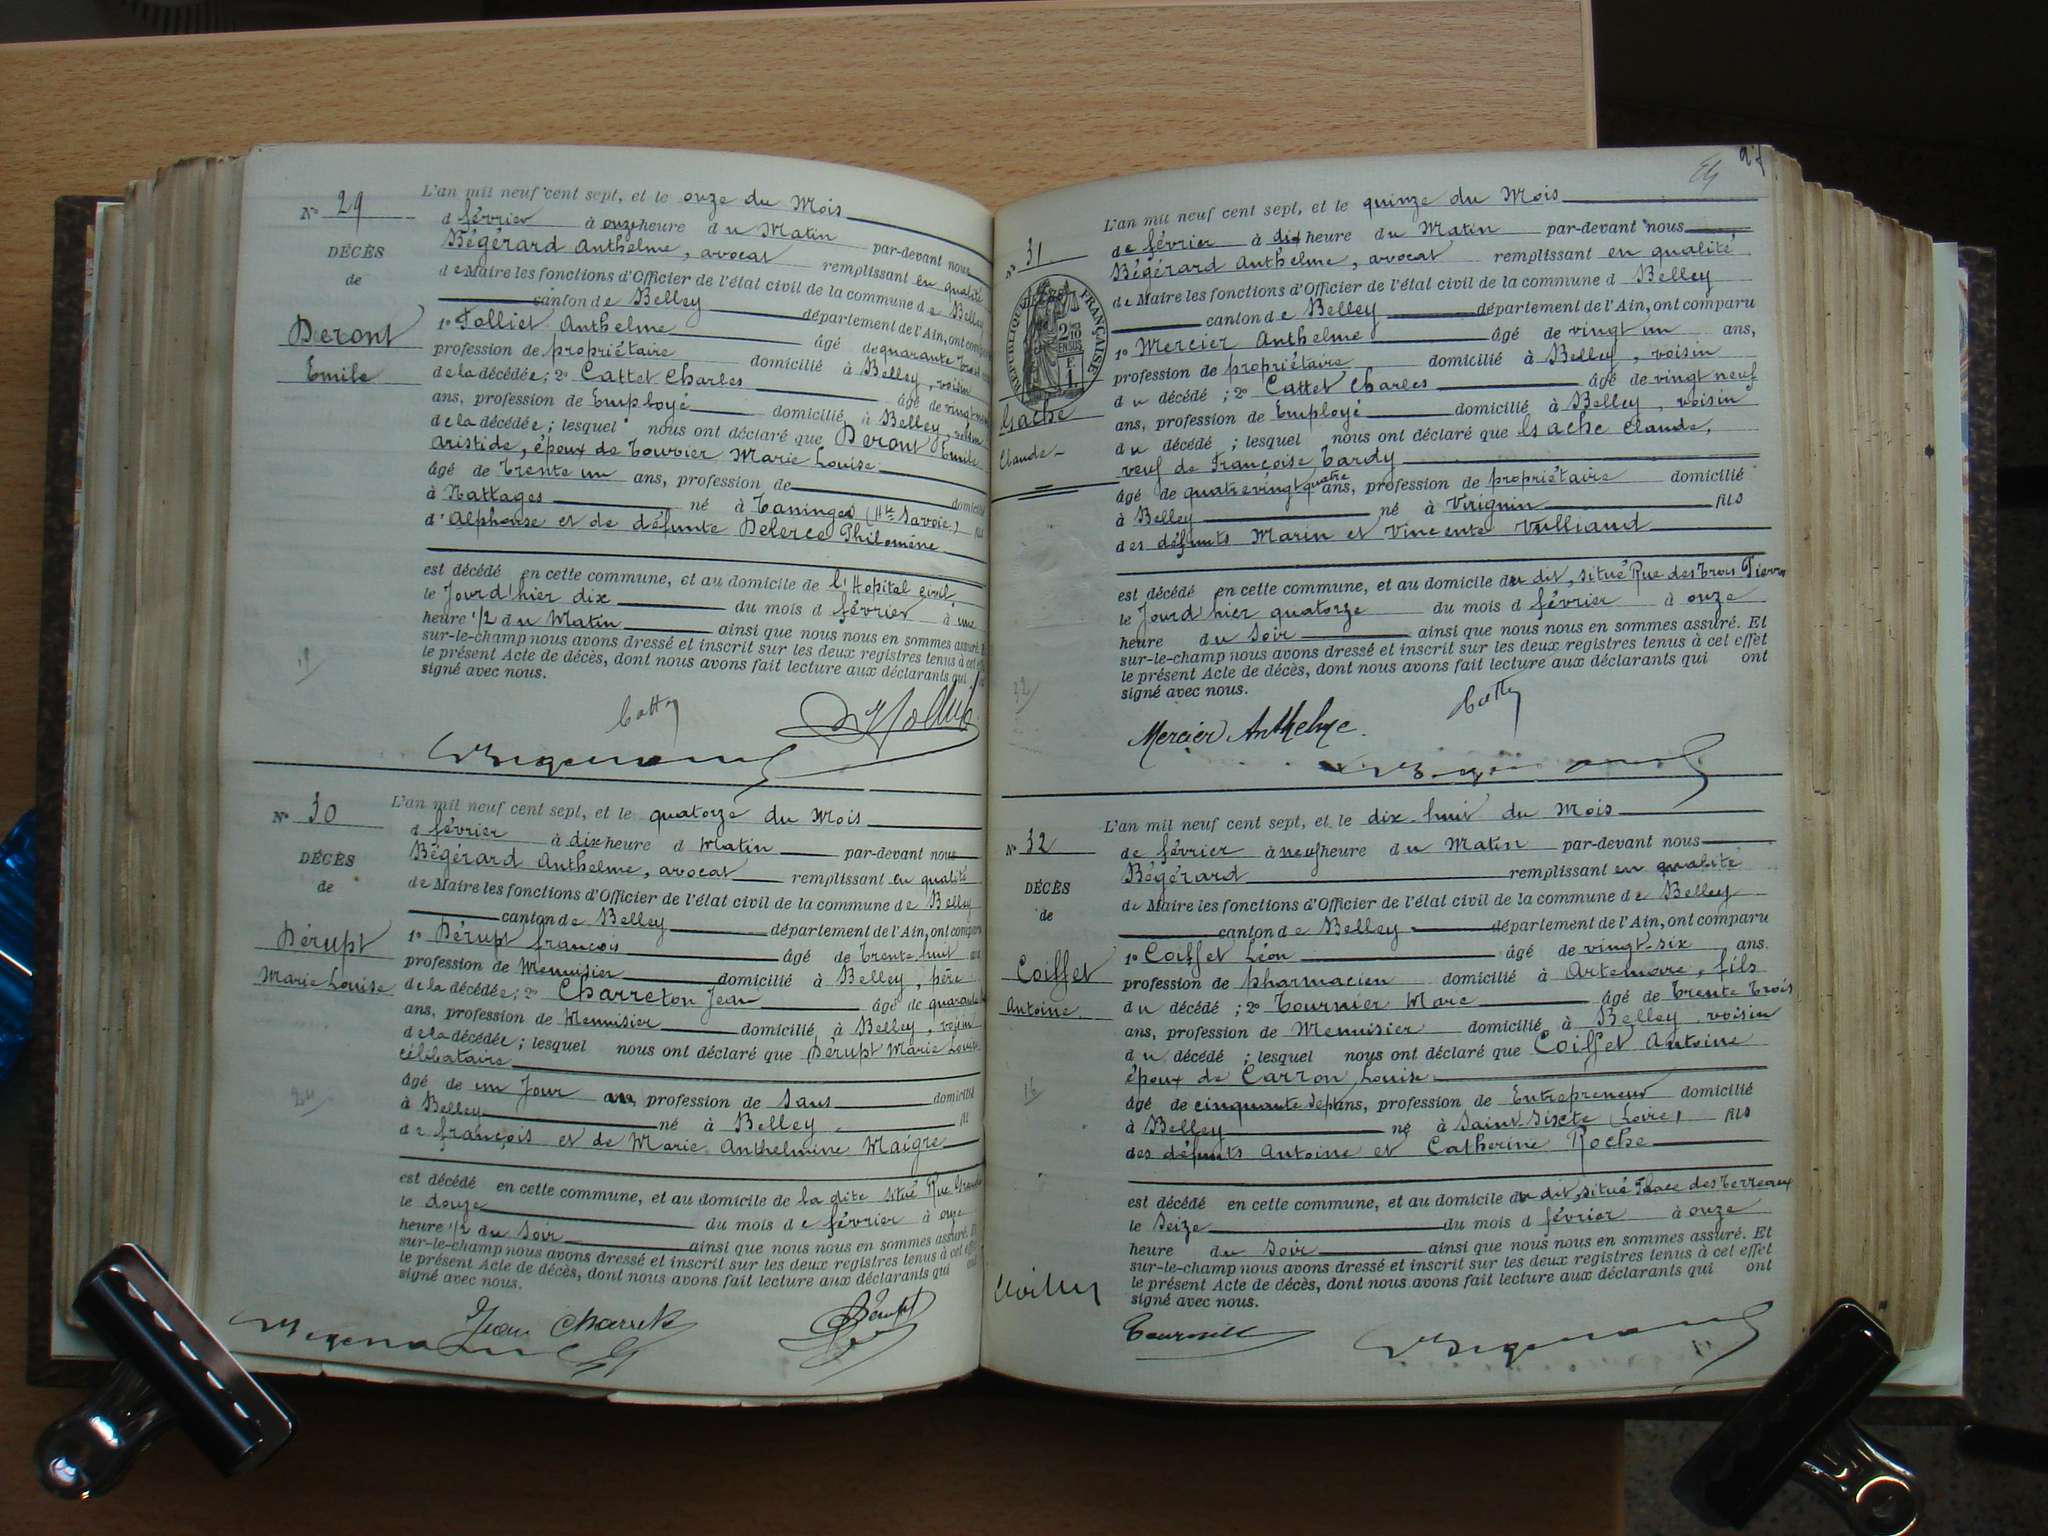 L'an mil neuf cent sept, et le onze du Mois
N° 29
d février à onze heure du Matin par-devant nous
Bégérard Anthelme, avocat remplissant en qualité
DÉCÈS
de Maire les fonctions d'Officier de l'état civil de la commune de Belley
de
canton de Belley département de l'Ain, ont comparu
Deront
1° Folliet Anthelme âgé de quarante trois
profession de propriétaire domicilié à Belley, voisin
Emile
de la décédée; 2° Cattet Charles âgé de vingt neuf
ans, profession de Employé domicilié à Belley, voisin
de la décédée; lesquel nous ont déclaré que Deront Emile
Aristide, époux de Tourrier Marie Louise
âgé de trente un ans, profession de domicilié
à Nattages né à Taninges (Hte Savoie) fils
d'Alphonse et de défunte Delerce Philomène
est décédé en cette commune, et au domicile de l'Hopital civil
le Jourd'hier dix du mois d février à une
heure 1/2 du Matin ainsi que nous nous en sommes assuré. Et
sur-le-champ nous avons dressé et inscrit sur les deux registres tenus à cet effet
le présent Acte de décès, dont nous avons fait lecture aux déclarants qui
signé avec nous.
L'an mil neuf cent sept, et le quatorze du Mois
N° 30
d février à dix heure d Matin par-devant nous
Bégérard Anthelme, avocat remplissant en qualité
DÉCÈS
de Maire les fonctions d'Officier de l'état civil de la commune de Belley
de
canton de Belley département de l'Ain, ont comparu
Dérupt
1° Dérupt françois âgé de trente huit ans
profession de Menuisier domicilié à Belley, père
Marie Louise
de la décédée; 2° Charreton Jean âgé de quarante
ans, profession de Menuisier domicilié à Belley, voisin
de la décédée; lesquel nous ont déclaré que Dérupt Marie Louise
célibataire
âgé de un Jour ans, profession de sans domicilié
à Belley né à Belley fil
de françois et de Marie Anthelmine Maigre
est décédé en cette commune, et au domicile de la dite situé Rue Grande
le douze du mois de février à onze
heure 1/2 du Soir ainsi que nous nous en sommes assuré. Et
sur-le-champ nous avons dressé et inscrit sur les deux registres tenus à cet effet
le présent Acte de décès, dont nous avons fait lecture aux déclarants qui ont
signé avec nous.
Jean Charreton
Dérupt
L'an mil neuf cent sept, et le quinze du Mois
N° 31
de février à dix heure du Matin par-devant nous
Bégérard Anthelme, avocat remplissant en qualité
de Maire les fonctions d'Officier de l'état civil de la commune d Belley
RÉPUBLIQUE FRANÇAISE
canton de Belley département de l'Ain, ont comparu
1° Mercier Anthelme âgé de vingt un ans,
profession de propriétaire domicilié à Belley, voisin
du décédé; 2° Cattet Charles âgé de vingt neuf
Gache
ans, profession de Employé domicilié à Belley, voisin
du décédé; lesquel nous ont déclaré que Gache Claude,
Claude
veuf de Françoise Tardy
âgé de quatrevingt quatre ans, profession de propriétaire domicilié
à Belley né à Virignin fils
des défunts Marin et Vincente Vulliaud
est décédé en cette commune, et au domicile du dit, situé Rue des Trois Pierres
le Jourd'hier quatorze du mois d février à onze
heure du Soir ainsi que nous nous en sommes assuré. Et
sur-le-champ nous avons dressé et inscrit sur les deux registres tenus à cet effet
le présent Acte de décès, dont nous avons fait lecture aux déclarants qui ont
signé avec nous.
Mercier Anthelme
L'an mil neuf cent sept, et le dix huit du Mois
N° 32
de février à neuf heure du Matin par-devant nous
Bégérard remplissant en qualité
DÉCÈS
de Maire les fonctions d'Officier de l'état civil de la commune de Belley
de
canton de Belley département de l'Ain, ont comparu
1° Coiffet Léon âgé de vingt-six ans.
Coiffet
profession de pharmacien domicilié à Artemare, fils
Antoine
du décédé; 2° Tournier Marc âgé de trente trois
ans, profession de Menuisier domicilié à Belley, voisin
du décédé; lesquel nous ont déclaré que Coiffet Antoine
époux de Carron Louise
âgé de cinquante sept ans, profession de Entrepreneur domicilié
à Belley né à Saint Sixte (Loire) fils
des défunts Antoine et Catherine Roche
est décédé en cette commune, et au domicile du dit, situé Place des Terreaux
le Seize du mois d février à onze
heure du Soir ainsi que nous nous en sommes assuré. Et
sur-le-champ nous avons dressé et inscrit sur les deux registres tenus à cet effet
le présent Acte de décès, dont nous avons fait lecture aux déclarants qui ont
signé avec nous.